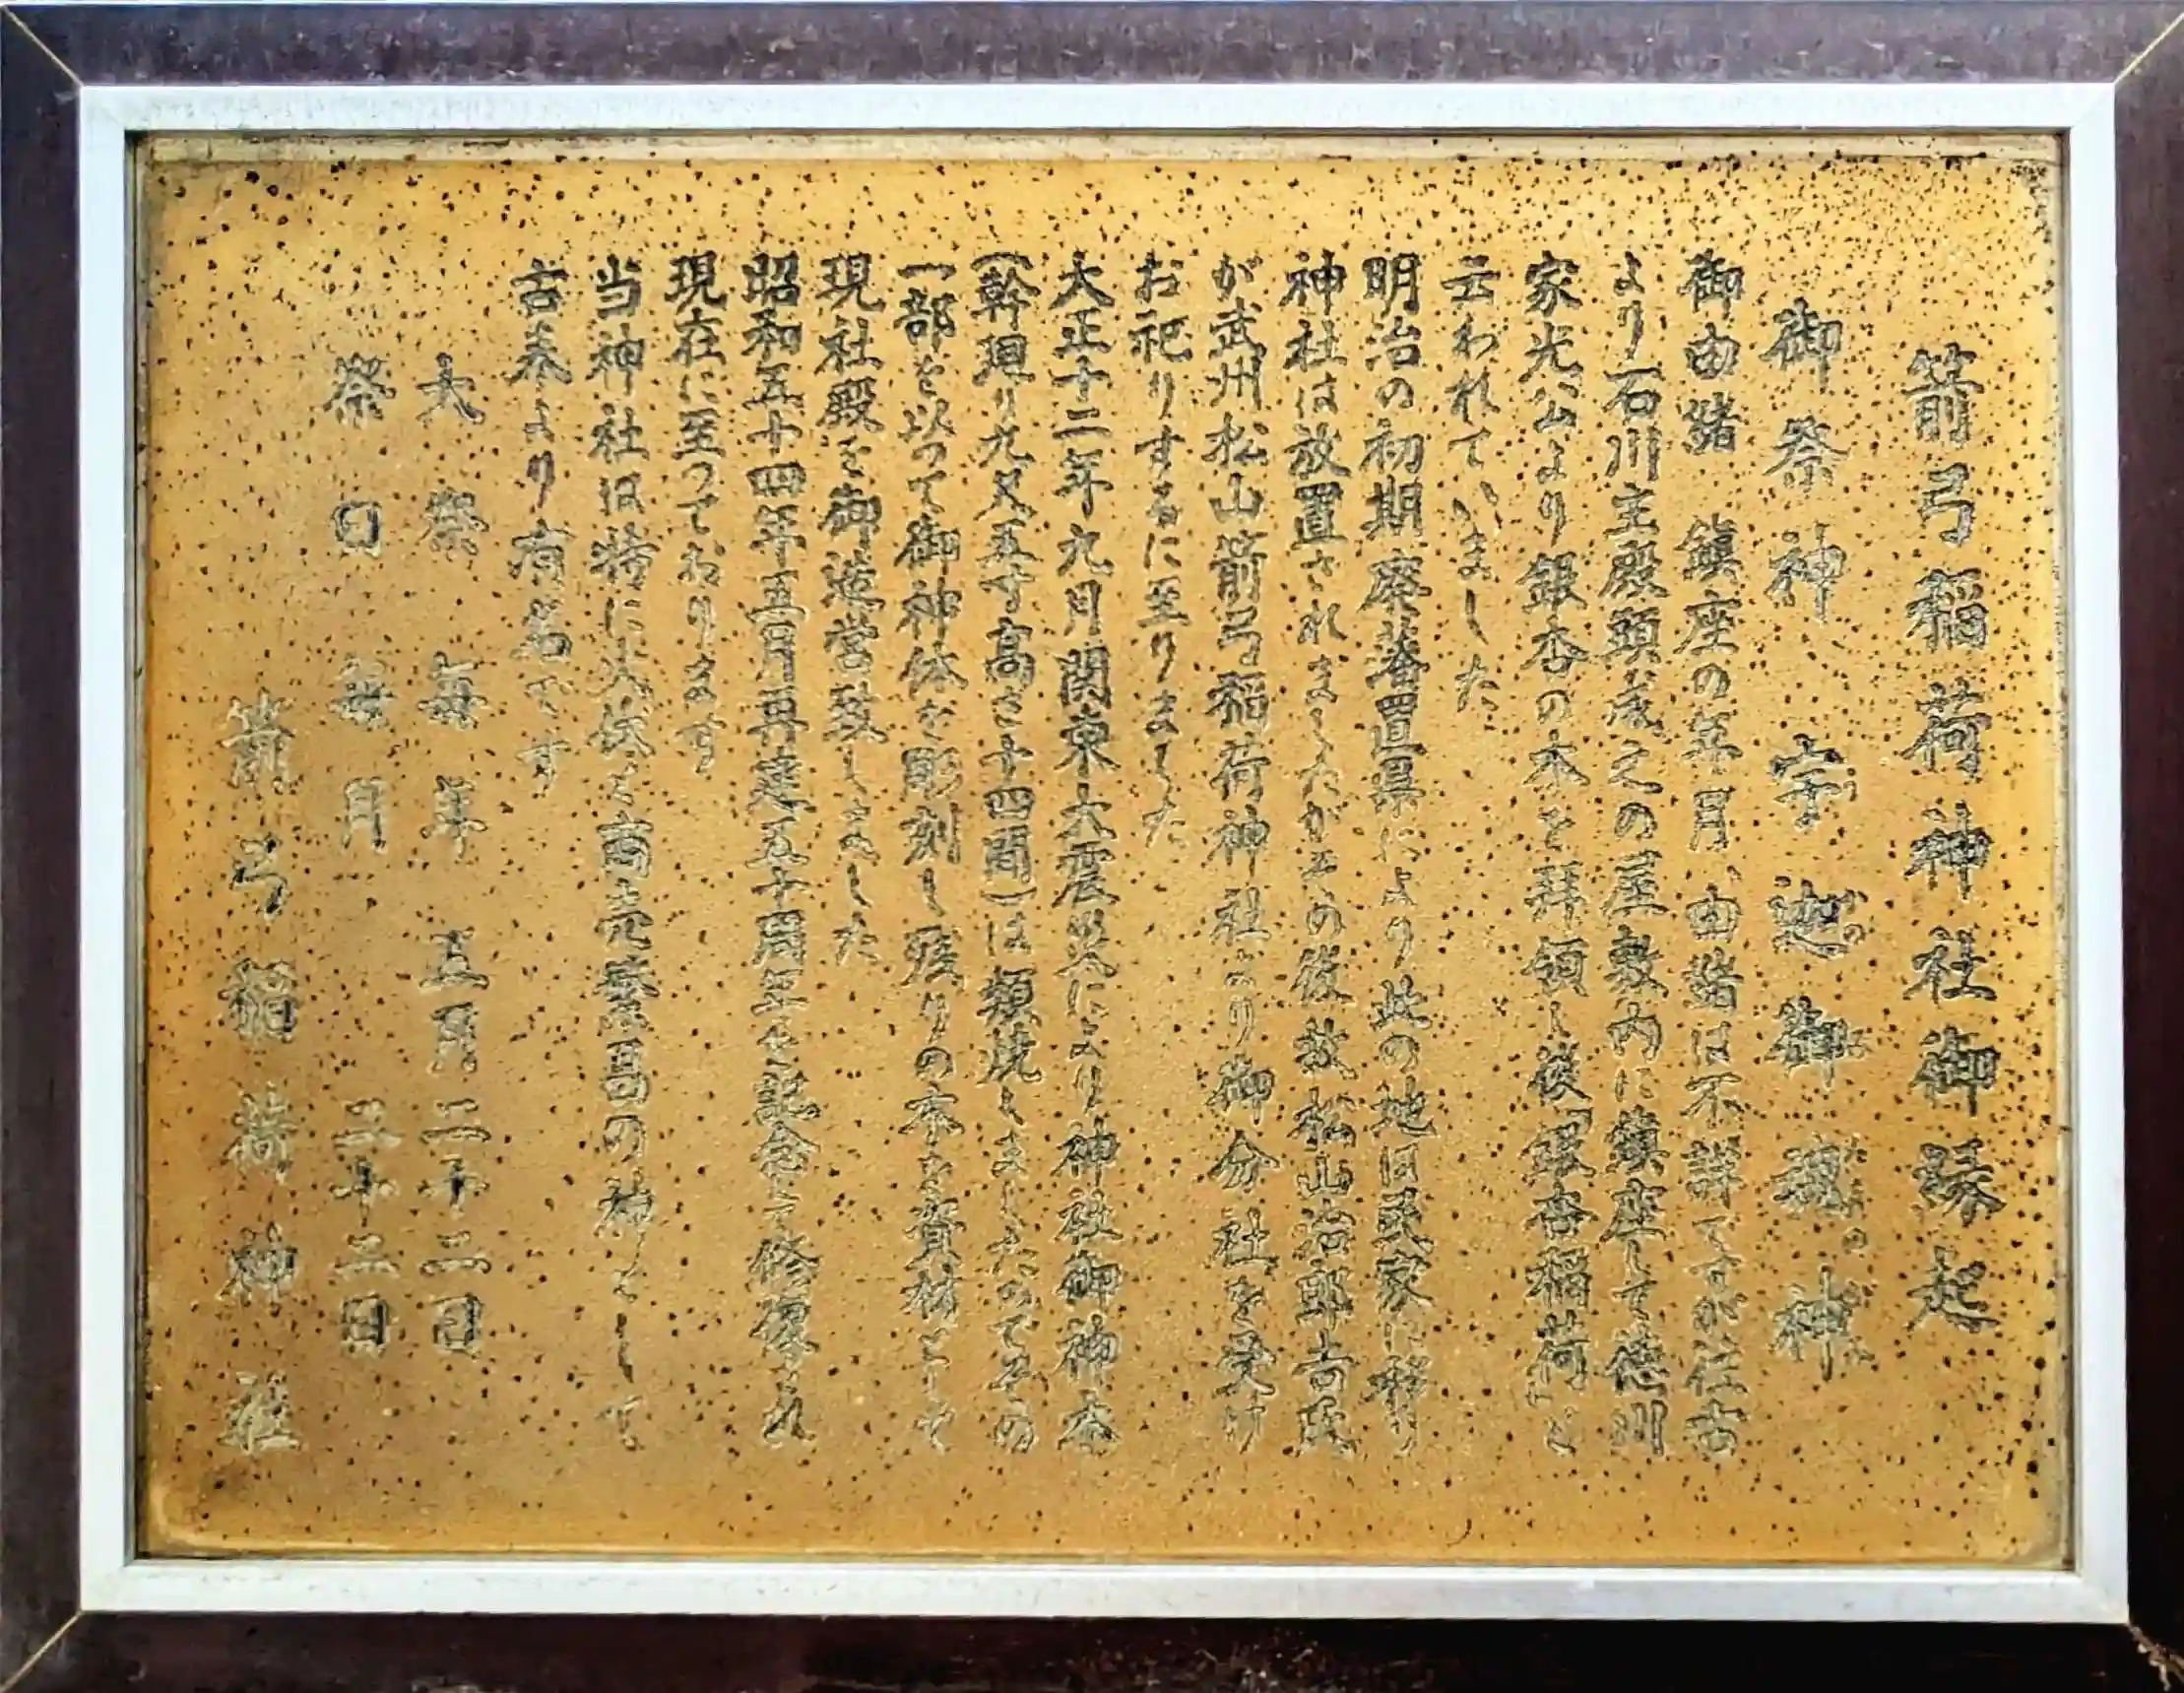 箭弓稲荷神社御縁起
御祭神 宇迦御魂神
御由緒 鎮座の年月、由緒は不詳ですが往古
より石川主殿頭成之の屋敷内に鎮座して徳川
家光公より銀杏の木を拝領し後「銀杏稲荷」と
云われていました
明治の初期廃藩置県により此の地は民家に移り
神社は放置されましたがその後故松山治郎吉氏
が武州松山箭弓稲荷神社より御分社を受け
お祀りするに至りました
大正十二年九月関東大震災により神社御神木
(幹廻り九尺五寸高さ十四間)は類焼しましたのでその
一部を以つて御神体を彫刻し残りの木を資材として
現社殿を御造営致しました
昭和五十四年五月再建五十周年を記念して修復され
現在に至つております
当神社は特に火伏と商売繁昌の神として
古来より有名です
大祭 毎年 五月二十二日
祭日 毎月 二十二日
箭弓稲荷神社